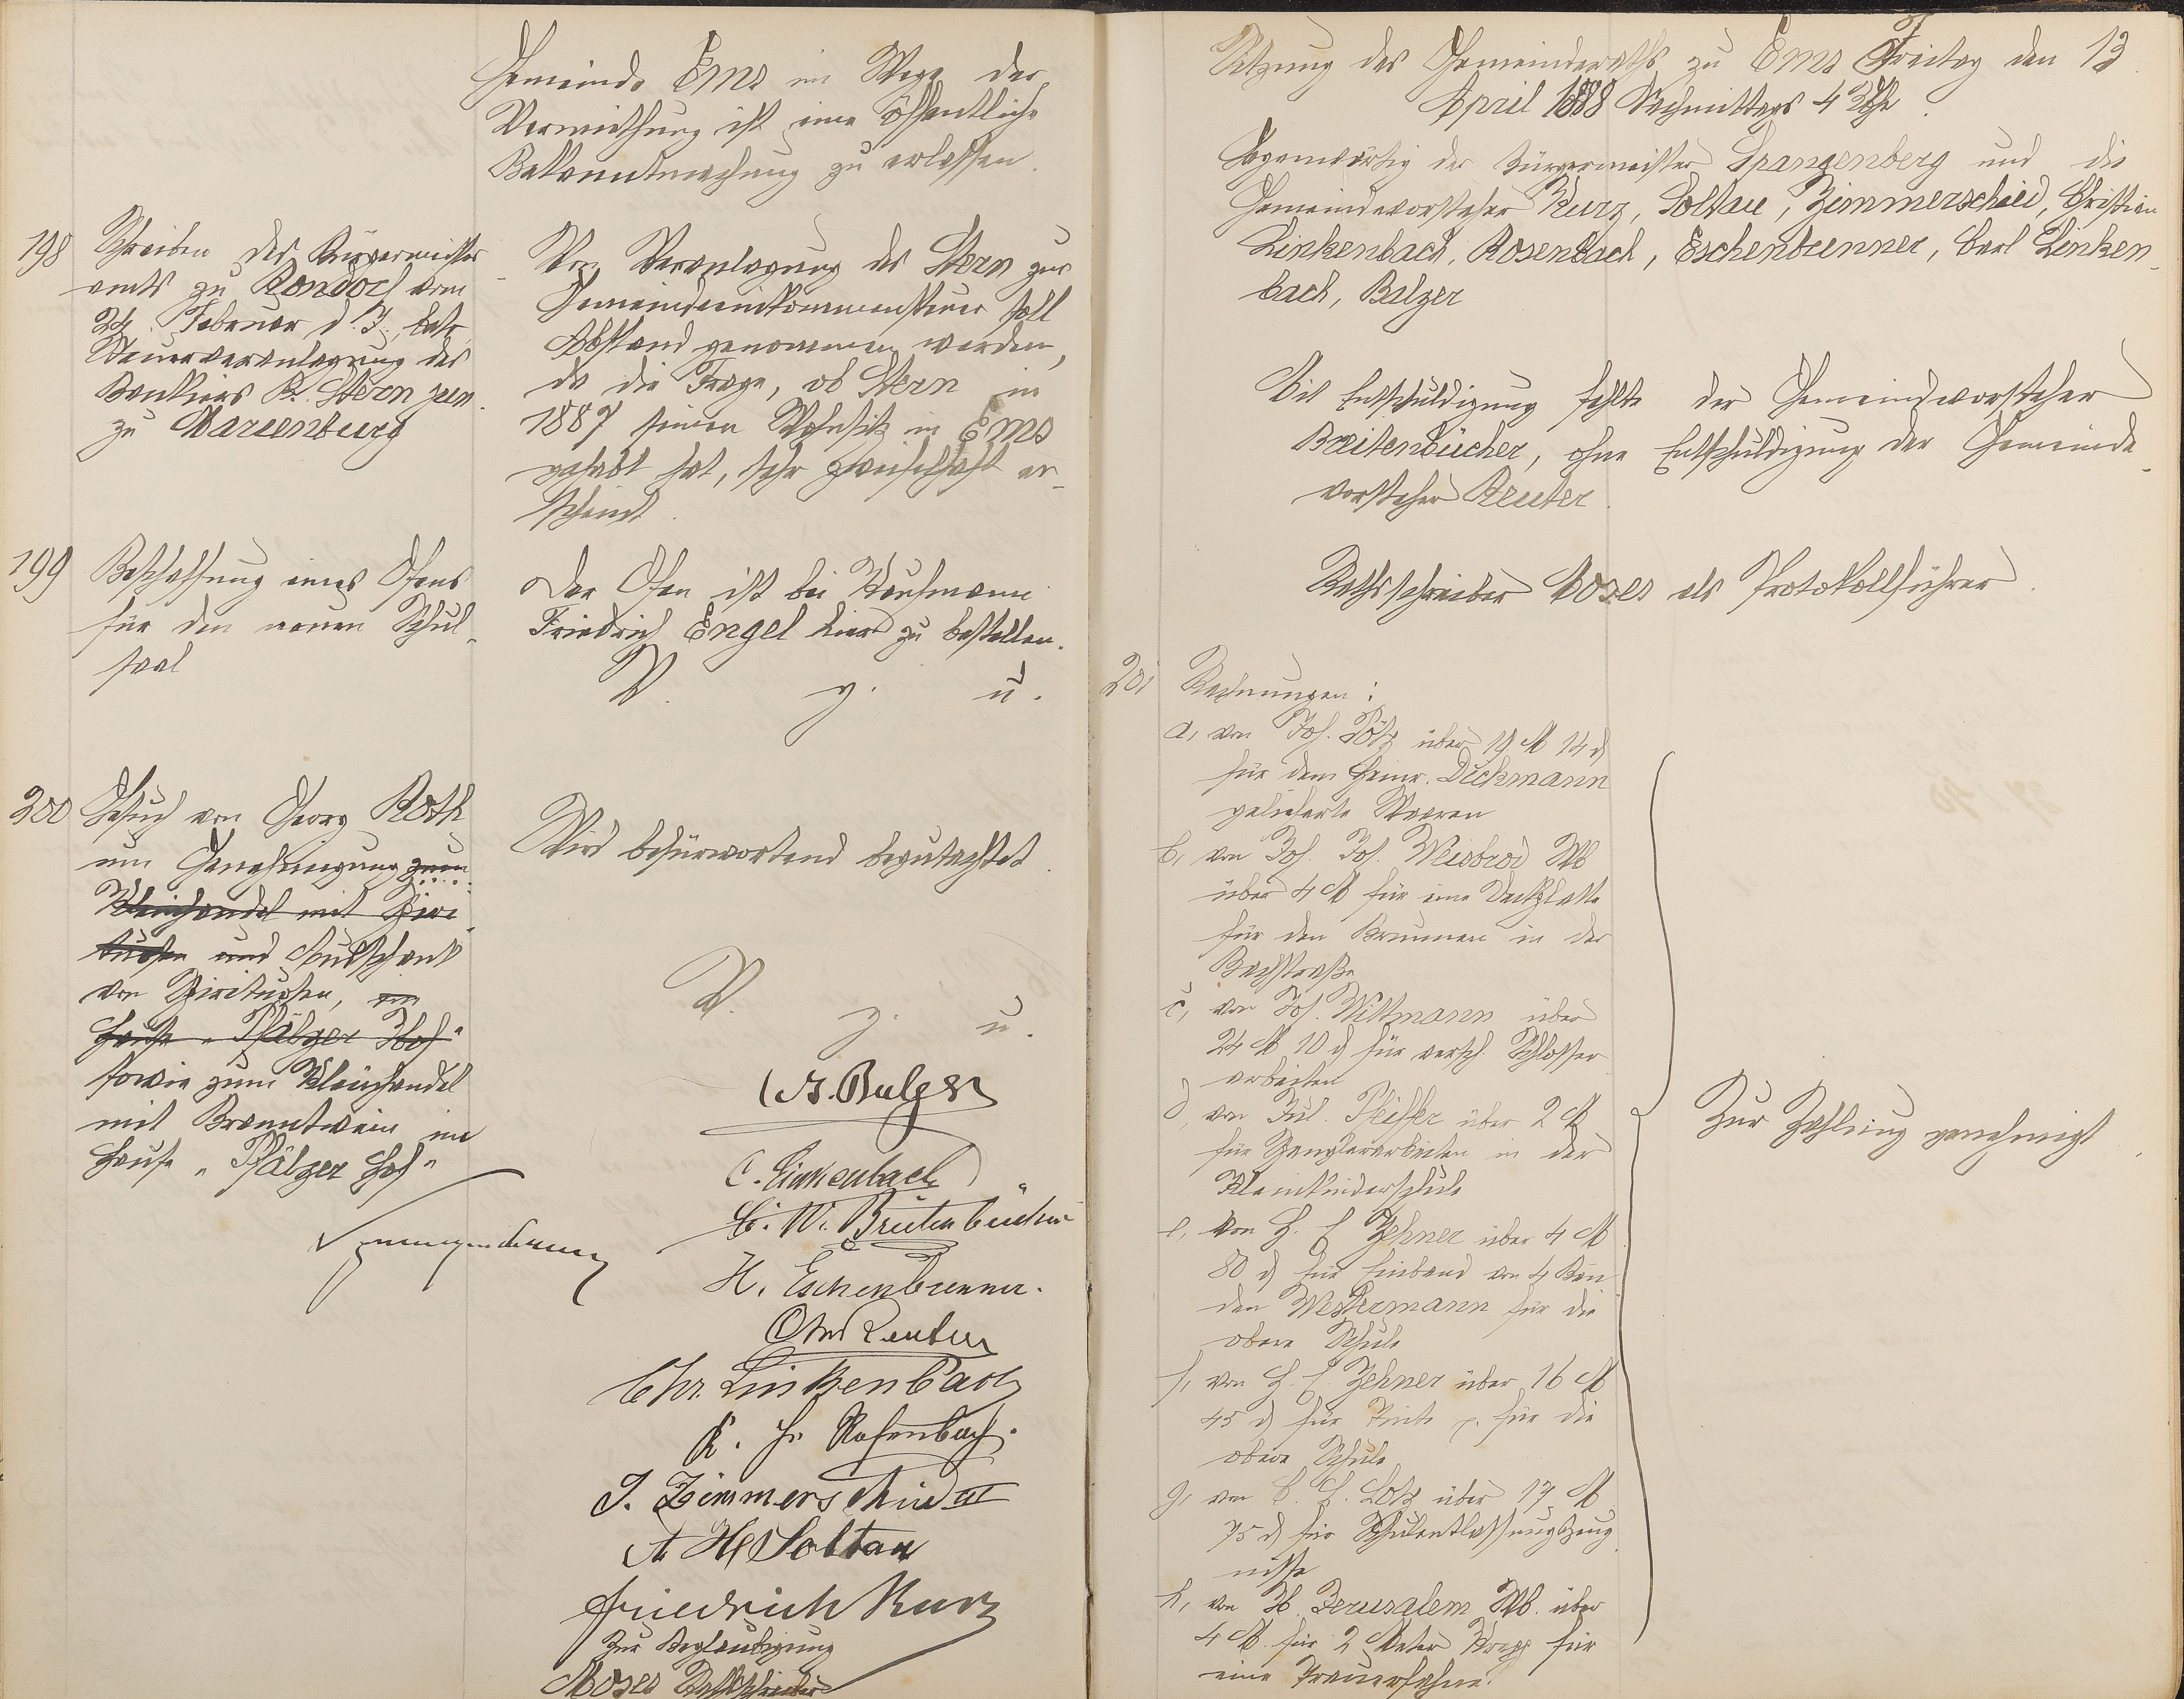 Gemeinde Ems im Wege der
Vermiethung ist eine öffentliche
Bekanntmachung zu erlassen.
198
Schreiben des Bürgermeister
amts zu Rondorf vom
24. Februar d. J., betr.
Steuerveranlagung des
Bankiers R. Stern jun.
zu Marienburg
Von Veranlagung des Stern zur
Gemeindeeinkommensteuer soll
Abstand genommen werden,
da die Frage, ob Stern in
1887 seinen Wohnsitz in Ems
gehabt hat, sehr zweifelhaft er-
scheint.
199
Beschaffung eines Ofens
für den neuen Schul-
saal
Der Ofen ist bei Kaufmann
Friedrich Engel hier zu bestellen.
V. g. u.
200
Gesuch von Georg Roth
um Genehmigung zum
Kleinhandel mit Spiri-
tuosen und Ausschank
von Spirituosen, im
Hause "Pfälzer Hof"
sowie zum Kleinhandel
mit Branntwein im
Hause "Pfälzer Hof"
Wird befürwortend begutachtet.
V. g. u.
A. Balzer
C. Linkenbach
C. W. Breitenbücher
H. Eschenbrenner.
Reuter
Chr. Linkenbach
K. H. Rosenbach.
J. Zimmerschied III
A H Soltau
Friedrich Kurz
Zur Beglaubigung
Moses Rathschreiber
Spangenberg
Sitzung des Gemeinderaths zu Ems Freitag den 13.
April 1888 Nachmittags 4 Uhr.
Gegenwärtig der Bürgermeister Spangenberg und die
Gemeindevorsteher Kurz, Soltau, Zimmerschied, Christian
Linkenbach, Rosenbach, Eschenbrenner, Carl Linken-
bach, Balzer
Mit Entschuldigung fehlte der Gemeindevorsteher
Breitenbücher, ohne Entschuldigung der Gemeinde-
vorsteher Reuter.
Rathsschreiber Moses als Protokollführer.
201
Rechnungen:
a, von Joh. Pötz über 19 M 14 d
für dem Heinr. Dickmann
gelieferte Waaren
b, von Joh. Jos. Weisbrod Wb
über 4 M für eine Deckplatte
für den Brunnen in der
Bachstraße
c, von Jos. Wittmann über
24 M 10 d für versch. Schlosser
arbeiten
d, von Jul. Pfeiffer über 2 M
für Spenglerarbeiten in der
Kleinkinderschule
e, von H. C Zehner über 4 M
80 d für Einband von 4 Bän
den Westermann für die
obere Schule
f, von H. C. Zehner über 16 M
45 d für Tinte p. für die
obere Schule
g, von C. C. Lotz über 17 M
75 d für Schulentlassungszeug
nisse
h, von H. Jerusalem Wb. über
4 M. für 2 Meter Krepp für
eine Trauerfahne.
Zur Zahlung genehmigt.